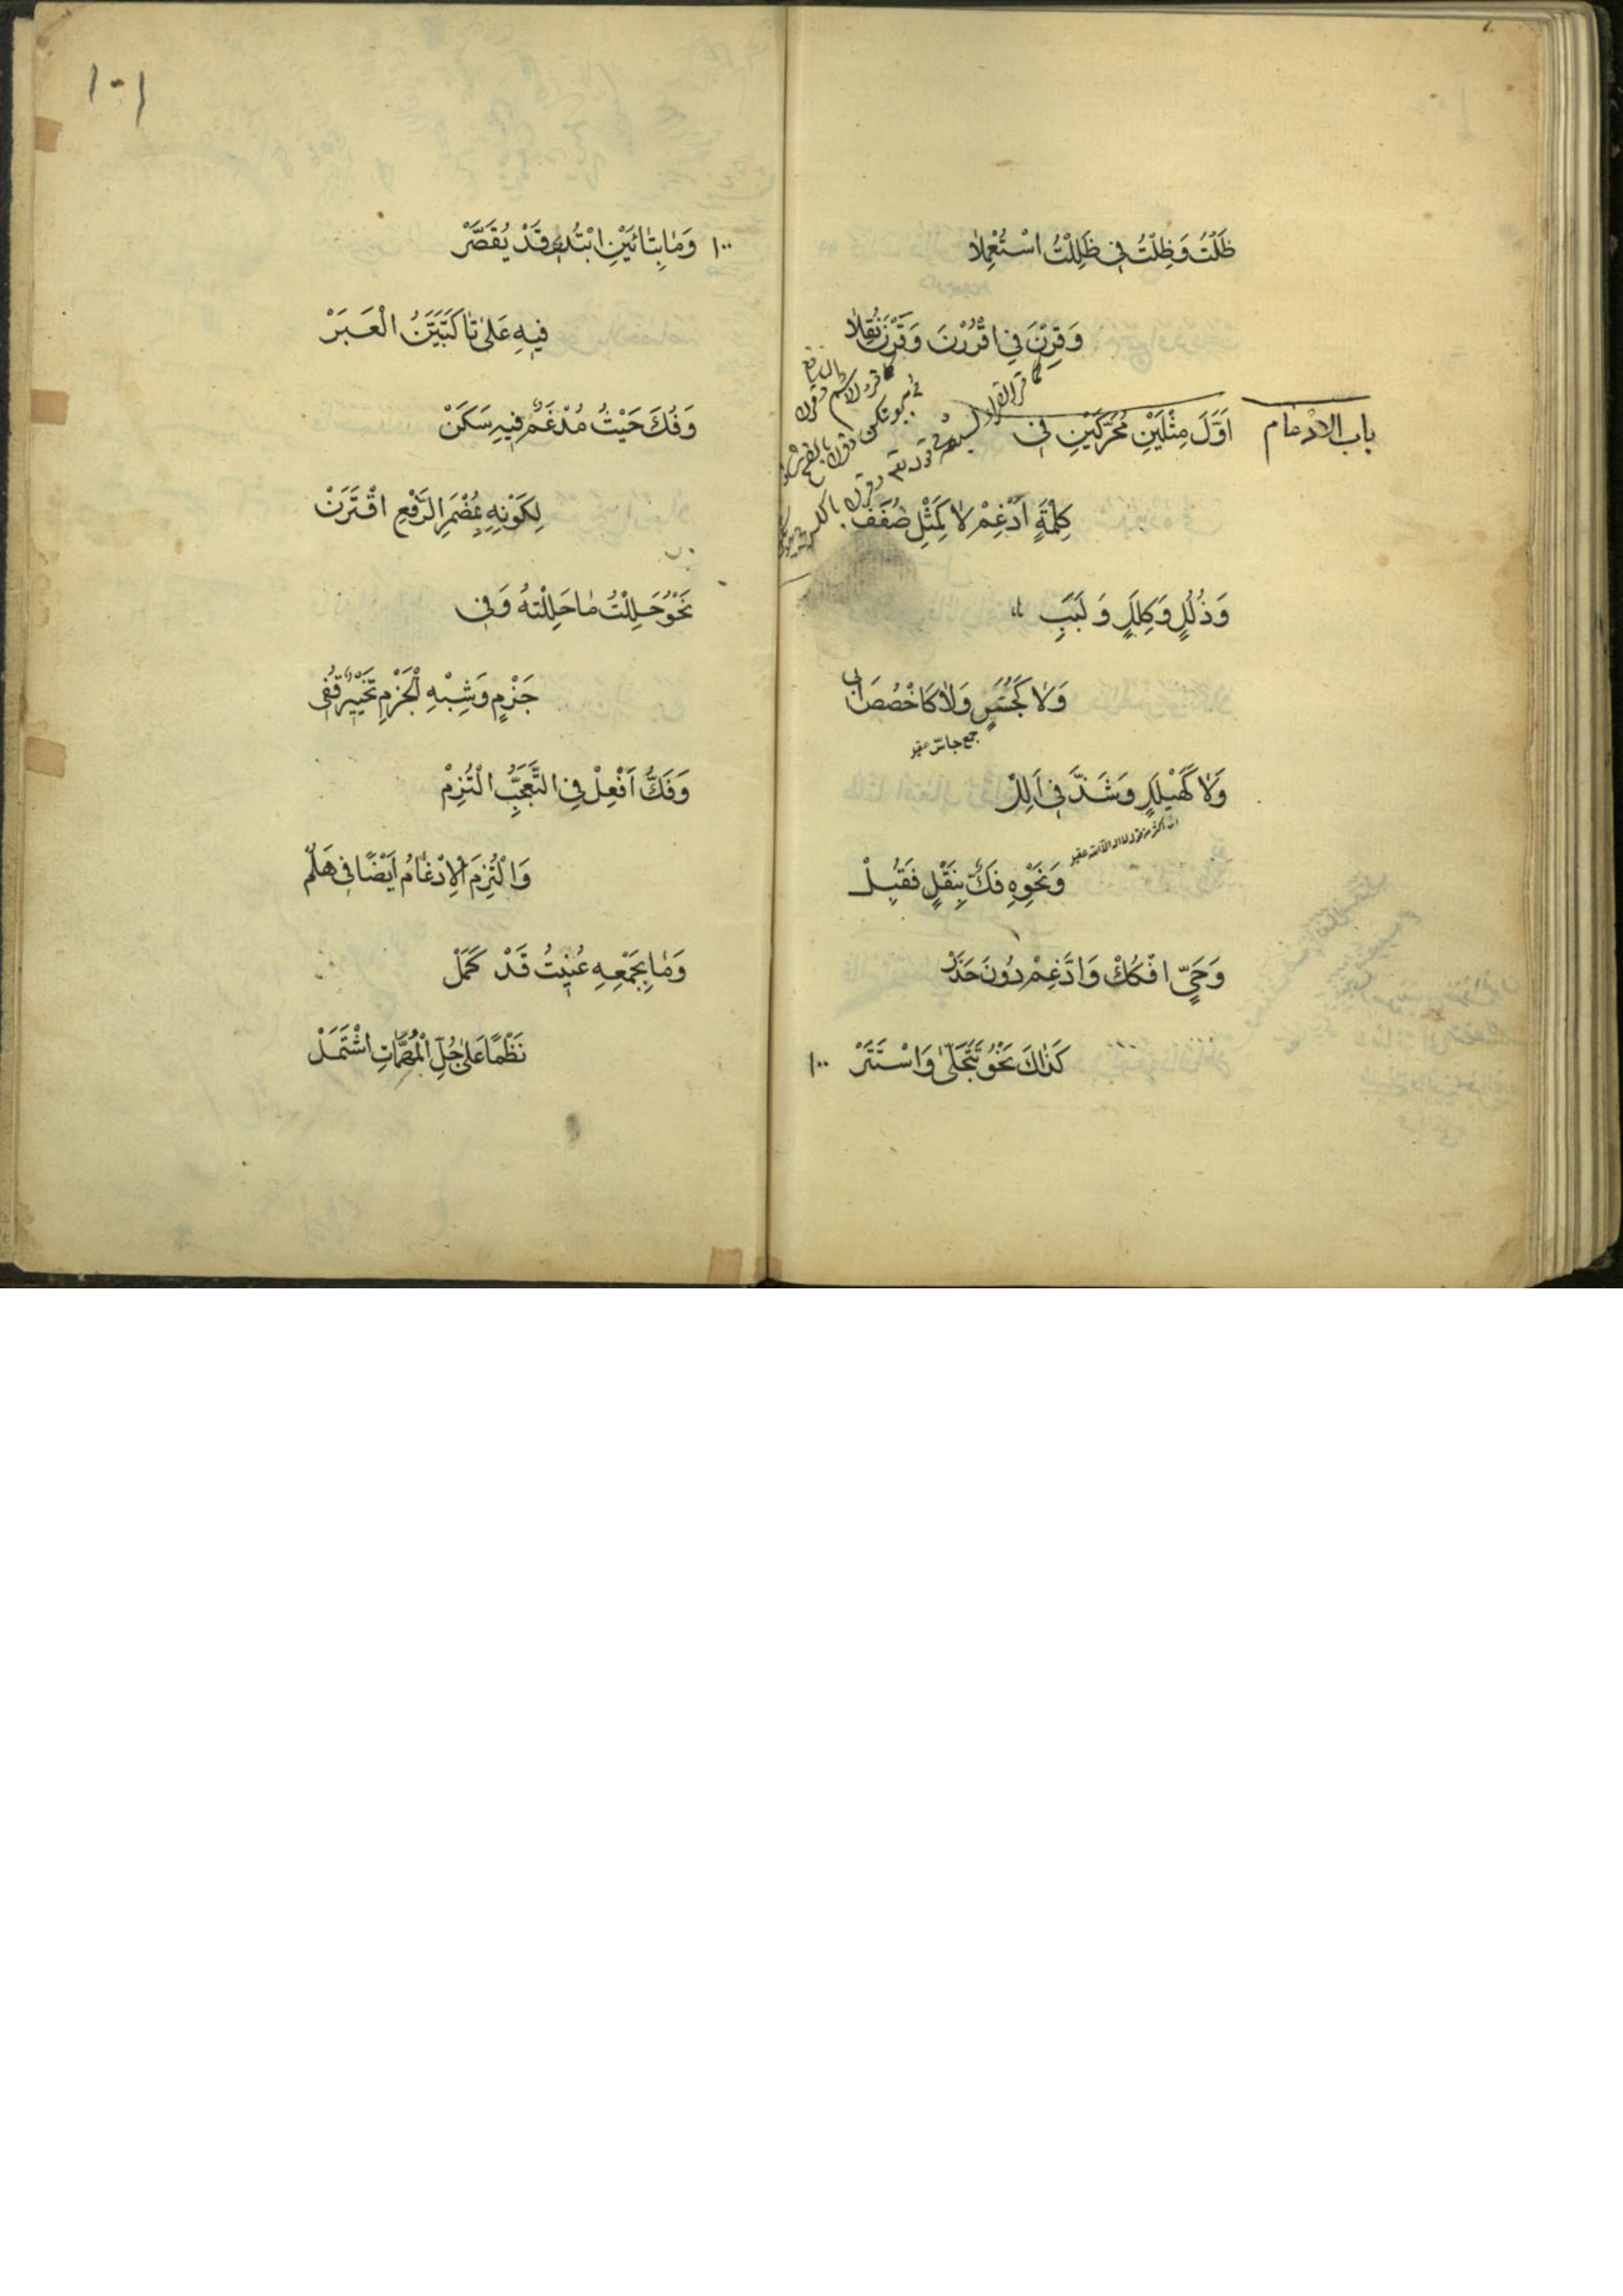 ظَلْتُ وَظِلْتُ فِي ظَلِلْتُ اسْتُعْمِلاٰ
وَقِرْنَ فِي اقْرُرْنَ وَقَرْنَ نُقِلاٰ
باب الادغام
اَوَّلَ مِثْلَيْنِ مُحَرَّكَيْنِ فِي
كِلْمَةٍ اَدْغِمْ لاٰ كَمِثْلِ صُفَفِ
وَذُلُلٍ وَكِلَلٍ وَلَبَبِ
وَلاٰ كَجُسَّسٍ وَلاٰ كَاخْصُصَ ابي
جمع جاسّ
وَلاٰ كَهَيْلَلٍ وَشَذَّ فِي اَلِلْ
وَنَحْوِهِ فَكٌّ بِنَقْلٍ فَقُبِلْ
وَحَيِيَ افْكُكْ وَادَّغِمْ دُونَ حَذَرْ
كَذٰاكَ نَحْوُ تَتَجَلّىٰ وَاسْتَتَرْ ١٠٠
١٠١
١٠٠ وَمٰا بِتٰائَيْنِ ابْتُدِي قَدْ يُقْتَصَرْ
فِيهِ عَلىٰ تٰا كَتَبَيَّنُ الْعِبَرْ
وَفُكَّ حَيْثُ مُدْغَمٌ فِيهِ سَكَنْ
لِكَوْنِهِ بِمُضْمَرِ الرَّفْعِ اقْتَرَنْ
نَحْوُ حَلَلْتُ مٰا حَلَلْتَهُ وَفِي
جَزْمٍ وَشِبْهِ الْجَزْمِ تَخْيِيرٌ قُفِي
وَفَكُّ اَفْعِلْ فِي التَّعَجُّبِ الْتُزِمْ
وَالْتُزِمَ الْاِدْغٰامُ اَيْضًا فِي هَلُمّْ
وَمٰا بِجَمْعِهِ عُنِيتُ قَدْ كَمَلْ
نَظْمًا عَلىٰ جُلِّ الْمُهِمّٰاتِ اشْتَمَلْ